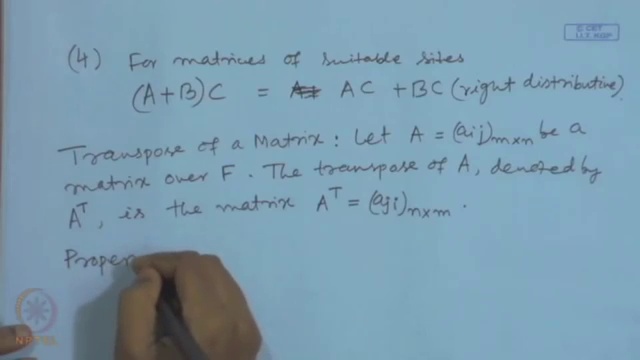 © CET
I.I.T. KGP
(4) For matrices of suitable sites
(A+B)C = AC + BC (right distributive)
Transpose of a Matrix: Let A = (aij)m×n be a
matrix over F. The transpose of A, denoted by
A^T, is the matrix A^T = (aji)n×m.
Proper
NPTEL